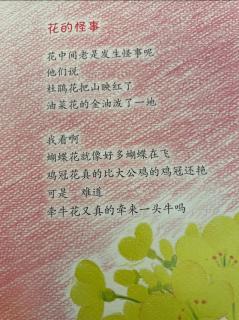 花的怪事
花中间老是发生怪事呢
他们说
杜鹃花把山映红了
油菜花的金油泼了一地
我看啊
蝴蝶花就像好多蝴蝶在飞
鸡冠花真的比大公鸡的鸡冠还艳
可是 难道
牵牛花又真的牵来一头牛吗